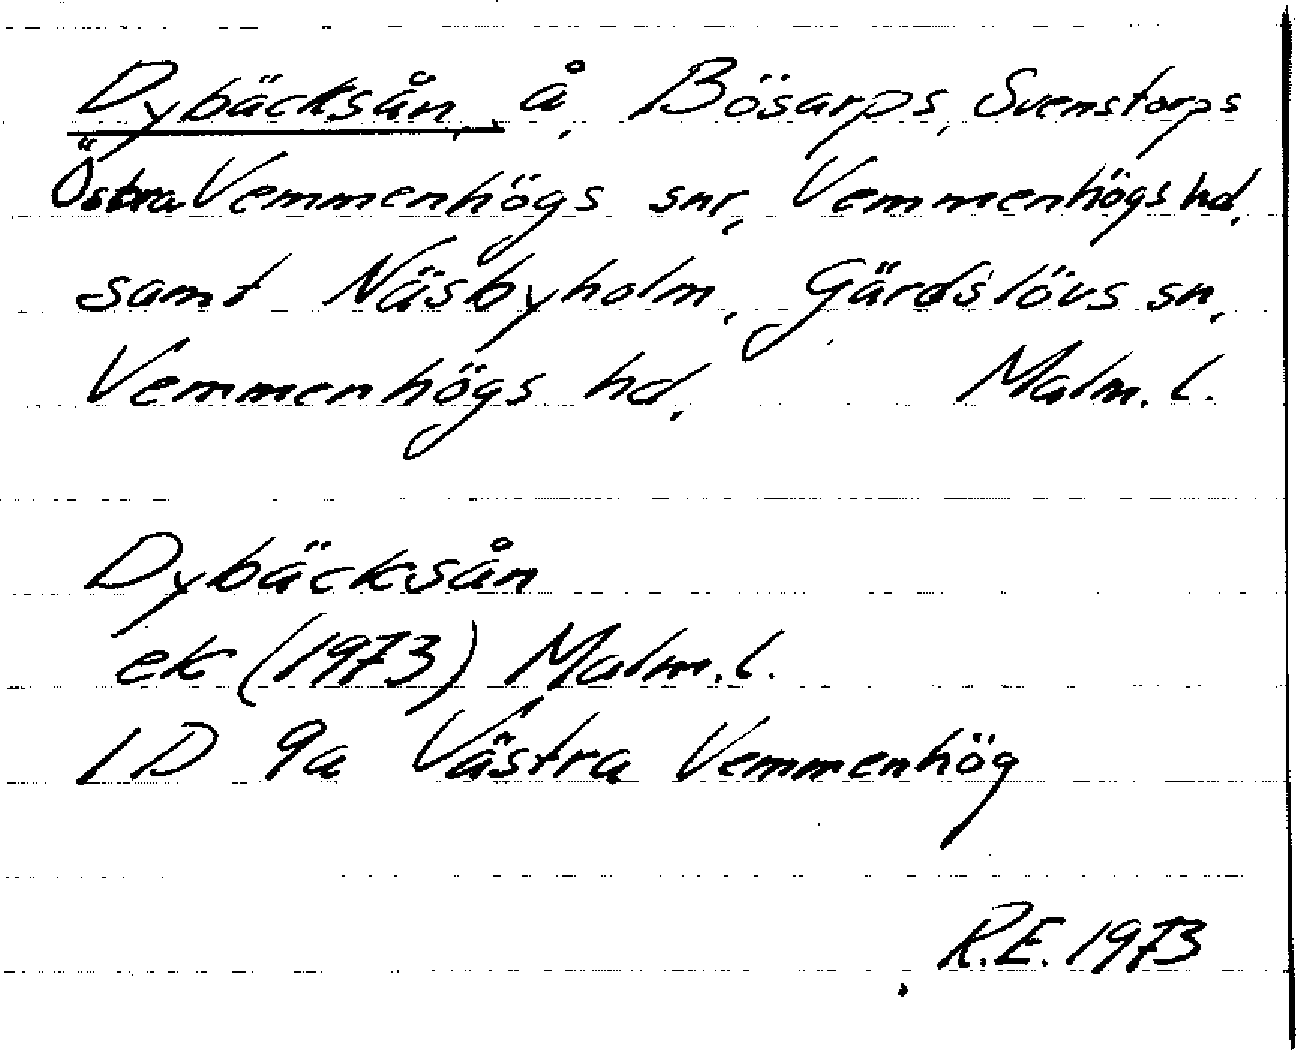 Dybäcksån, å, Bösarps, Svenstorps
Östra Vemmenhögs snr, Vemmenhögs hd,
samt Näsbyholm, Gärdslövs sn,
Vemmenhögs hd, Malm. l.
Dybäcksån
ek (1973) Malm. l.
1D 9a Västra Vemmenhög
R.E. 1973